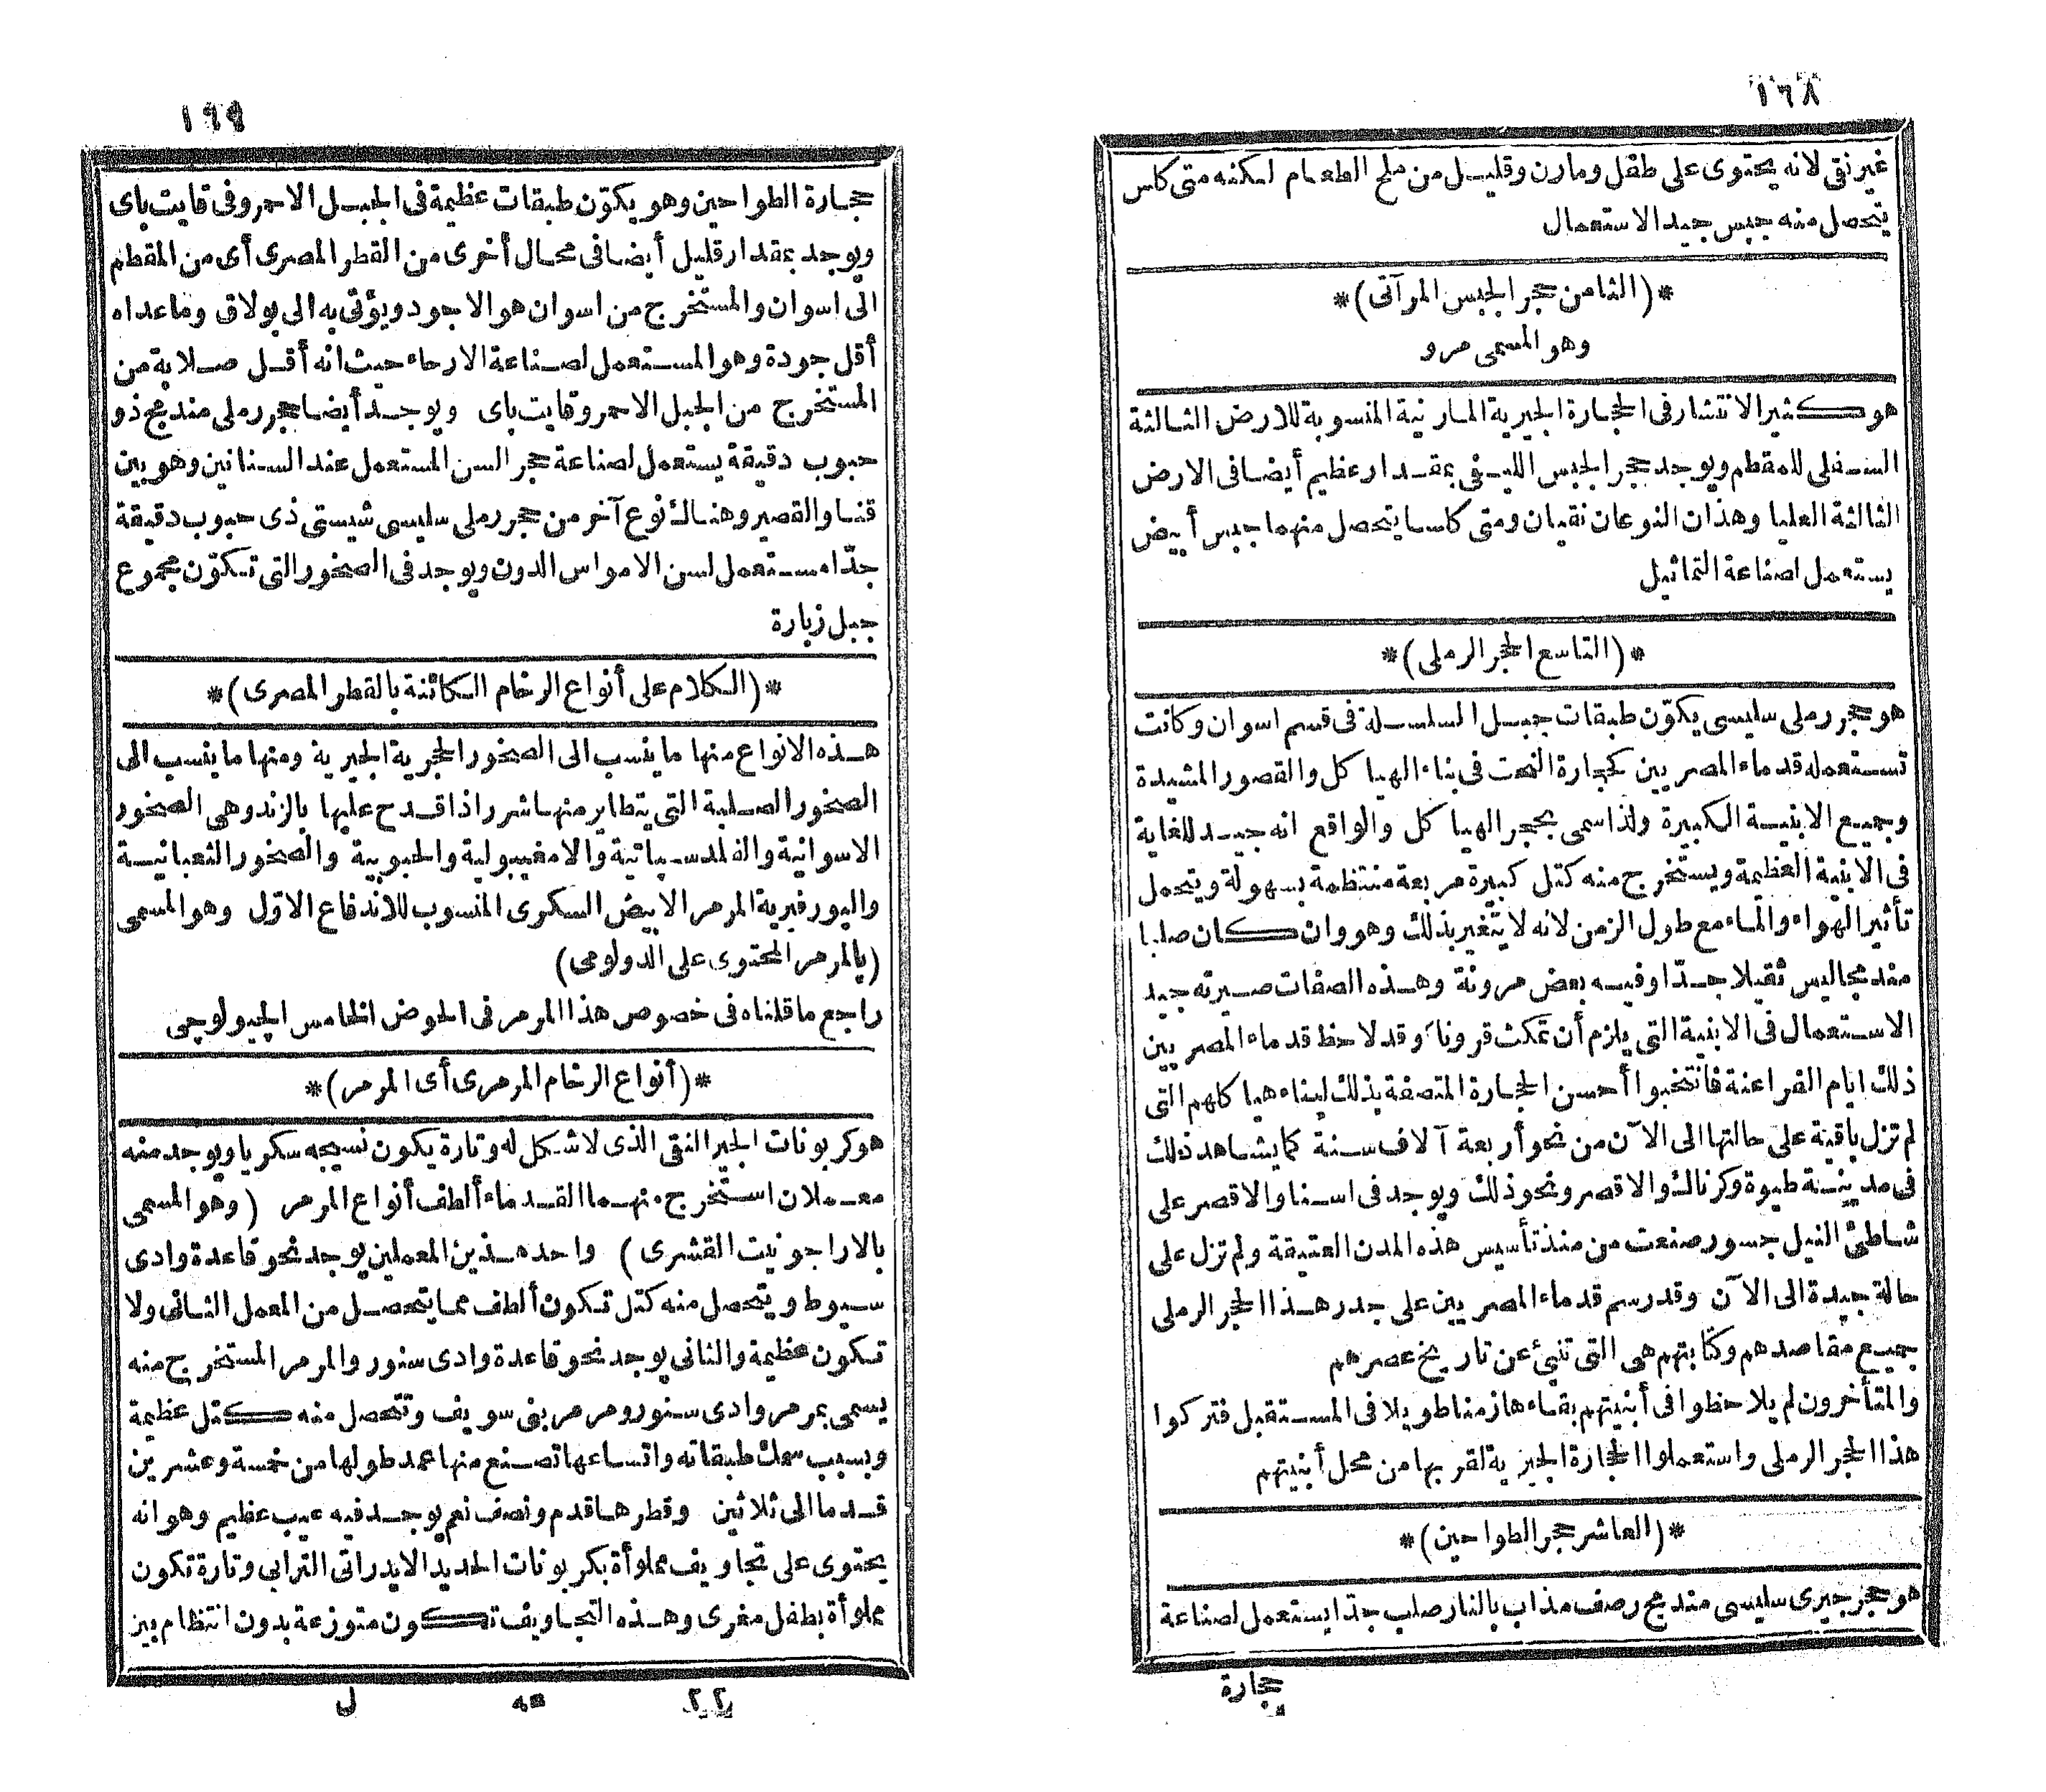 ١٦٨
غير نقى لانه يحتوى على طفل ومارن وقليل من ملح الطعام لكنه متى كاس
يتحصل منه جبس جيد الاستعمال
*(الثامن حجر الجبس المرآتى)*
وهو المسمى مرو
هو كثير الانتشار فى الحجارة الجيرية المارنية المنسوبة للارض الثالثة
السفلى للمقطم ويوجد حجر الجبس الليفى بمقدار عظيم أيضا فى الارض
الثالثة العليا وهذان النوعان نقيان ومتى كاسا يتحصل منهما جبس أبيض
يستعمل لصناعة التماثيل
*(التاسع الحجر الرملى)*
هو حجر رملى سليسى يكوّن طبقات جبل السلسلة فى قسم اسوان وكانت
تستعمله قدماء المصريين كحجارة النحت فى بناء الهياكل والقصور المشيدة
وجميع الابنية الكبيرة ولذا سمى بحجر الهياكل والواقع انه جيد للغاية
فى الابنية العظيمة ويستخرج منه كتل كبيرة مربعة منتظمة بسهولة ويتحمل
تأثير الهواء والماء مع طول الزمن لانه لا يتغير بذلك وهو وان كان صلبا
مندمجا ليس ثقيلا جدّا وفيه بعض مرونة وهذه الصفات صيرته جيد
الاستعمال فى الابنية التى يلزم أن تمكث قرونا وقد لاحظ قدماء المصريين
ذلك ايام الفراعنة فانتخبوا أحسن الحجارة المتصفة بذلك لبناء هياكلهم التى
لم تزل باقية على حالتها الى الآن من نحو أربعة آلاف سنة كما يشاهد ذلك
فى مدينة طيوة وكرناك والاقصر ونحو ذلك ويوجد فى اسنا والاقصر على
شاطئ النيل جسور صنعت من منذ تأسيس هذه المدن العتيقة ولم تزل على
حالة جيدة الى الآن وقد رسم قدماء المصريين على جدر هذا الحجر الرملى
جميع مقاصدهم وكتابتهم هى التى تنبئ عن تاريخ عصرهم
والمتأخرون لم يلاحظوا فى أبنيتهم بقاءها زمنا طويلا فى المستقبل فتركوا
هذا الحجر الرملى واستعملوا الحجارة الجيرية لقربها من محل أبنيتهم
*(العاشر حجر الطواحين)*
هو حجر جيرى سليسى مندمج رصف مذاب بالنار صلب جدّا يستعمل لصناعة
حجارة
١٦٩
حجارة الطواحين وهو يكوّن طبقات عظيمة فى الجبل الاحمر وفى قايت باى
ويوجد بمقدار قليل أيضا فى محال أخرى من القطر المصرى أى من المقطم
الى اسوان والمستخرج من اسوان هو الاجود ويؤتى به الى بولاق وماعداه
أقل جودة وهو المستعمل لصناعة الارحاء حيث انه أقل صلابة من
المستخرج من الجبل الاحمر وقايت باى ويوجد أيضا حجر رملى مندمج ذو
حبوب دقيقة يستعمل لصناعة حجر السن المستعمل عند السنانين وهو بين
قنا والقصير وهناك نوع آخر من حجر رملى سليسى شيستى ذى حبوب دقيقة
جدّا مستعمل لسن الامواس الدون ويوجد فى الصخور التى تكوّن مجموع
جبل زيارة
*(الكلام على أنواع الرخام الكائنة بالقطر المصرى)*
هذه الانواع منها ما ينسب الى الصخور الحجرية الجيرية ومنها ما ينسب الى
الصخور الصلبة التى يتطاير منها شرر اذا قدح عليها بالزند وهى الصخور
الاسوانية والفلدسپاتية والامفيبولية والحبوبية والصخور الثعبانية
واليورفيرية المرمر الابيض السكرى المنسوب للاندفاع الاوّل وهو المسمى
(بالمرمر المحتوى على الدولومى)
راجع ما قلناه فى خصوص هذا المرمر فى الحوض الخامس الجيولوجى
*(أنواع الرخام المرمرى أى المرمر)*
هو كربونات الجير النقى الذى لا شكل له وتارة يكون نسيجه سكريا ويوجد منه
معملان استخرج منهما القدماء ألطف أنواع المرمر (وهو المسمى
بالاراجونيت القشرى) واحد هذين المعملين يوجد نحو قاعدة وادى
سيوط ويتحصل منه كتل تكون ألطف مما يتحصل من المعمل الثانى ولا
تكون عظيمة والثانى يوجد نحو قاعدة وادى سنور والمرمر المستخرج منه
يسمى بمرمر وادى سنور ومرمر بنى سويف وتتحصل منه كتل عظيمة
وبسبب سمك طبقاته واتساعها تصنع منها عمد طولها من خمسة وعشرين
قدما الى ثلاثين وقطرها قدم ونصف نعم يوجد فيه عيب عظيم وهو انه
يحتوى على تجاويف مملوأة بكربونات الحديد الايدراتى الترابى وتارة تكون
مملوأة بطفل مغرى وهذه التجاويف تكون متوزعة بدون انتظام بين
٢٢ مه ل